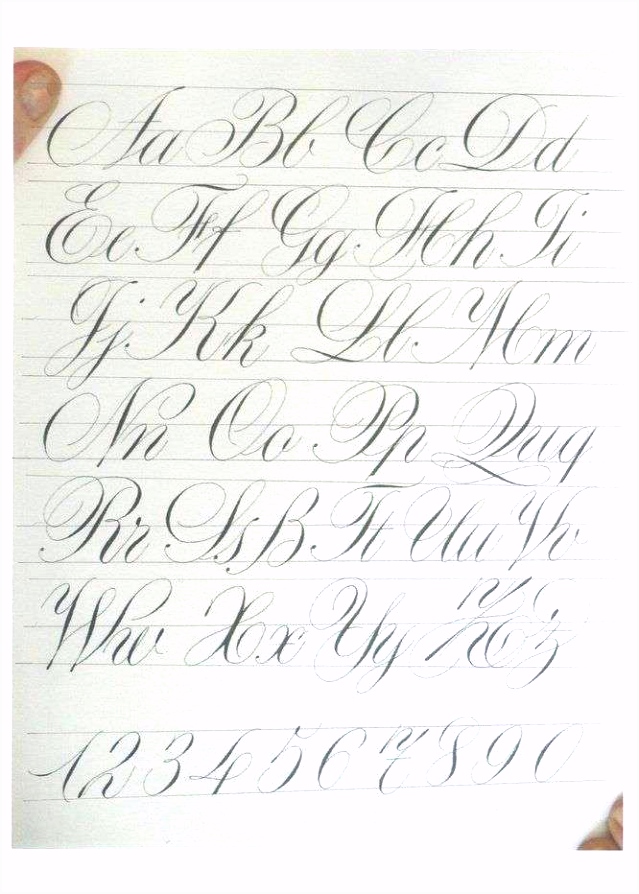 Aa Bb Cc Dd
Ee Ff Gg Hh Ii
Jj Kk Ll Mm
Nn Oo Pp Quq
Rr Ss ß Tt Uu Vv
Ww Xx Yy Zz
1 2 3 4 5 6 7 8 9 0